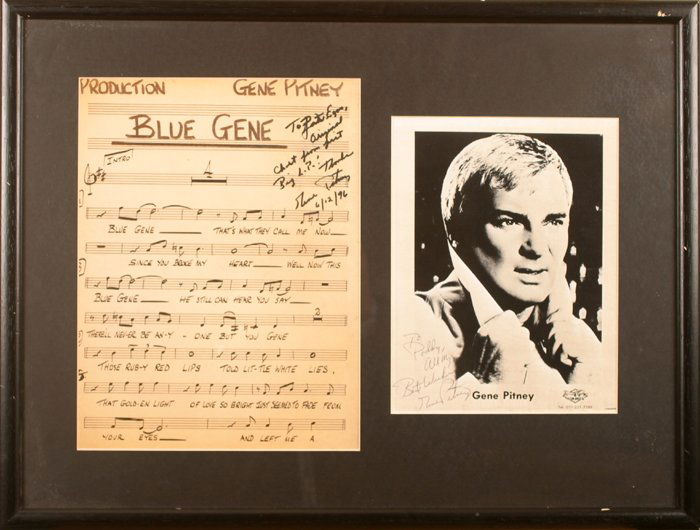 PRODUCTION GENE PITNEY
BLUE GENE
To
Original
Chart from first
Big L.P.! Thanks
Gene Pitney
6/12/96
INTRO
4
BLUE GENE THAT'S WHAT THEY CALL ME NOW
SINCE YOU BROKE MY HEART WELL NOW THIS
BLUE GENE HE STILL CAN HEAR YOU SAY
2
THERE'LL NEV-ER BE AN-Y - ONE BUT YOU GENE
THOSE RUB-Y RED LIPS TOLD LIT-TLE WHITE LIES,
THAT GOLD-EN LIGHT OF LOVE SO BRIGHT JUST SEEMED TO FADE FROM
YOUR EYES AND LEFT ME A
Bobby,
All My
Best Wishes
Gene Pitney
Gene Pitney